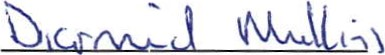 Diarmuid Mullins